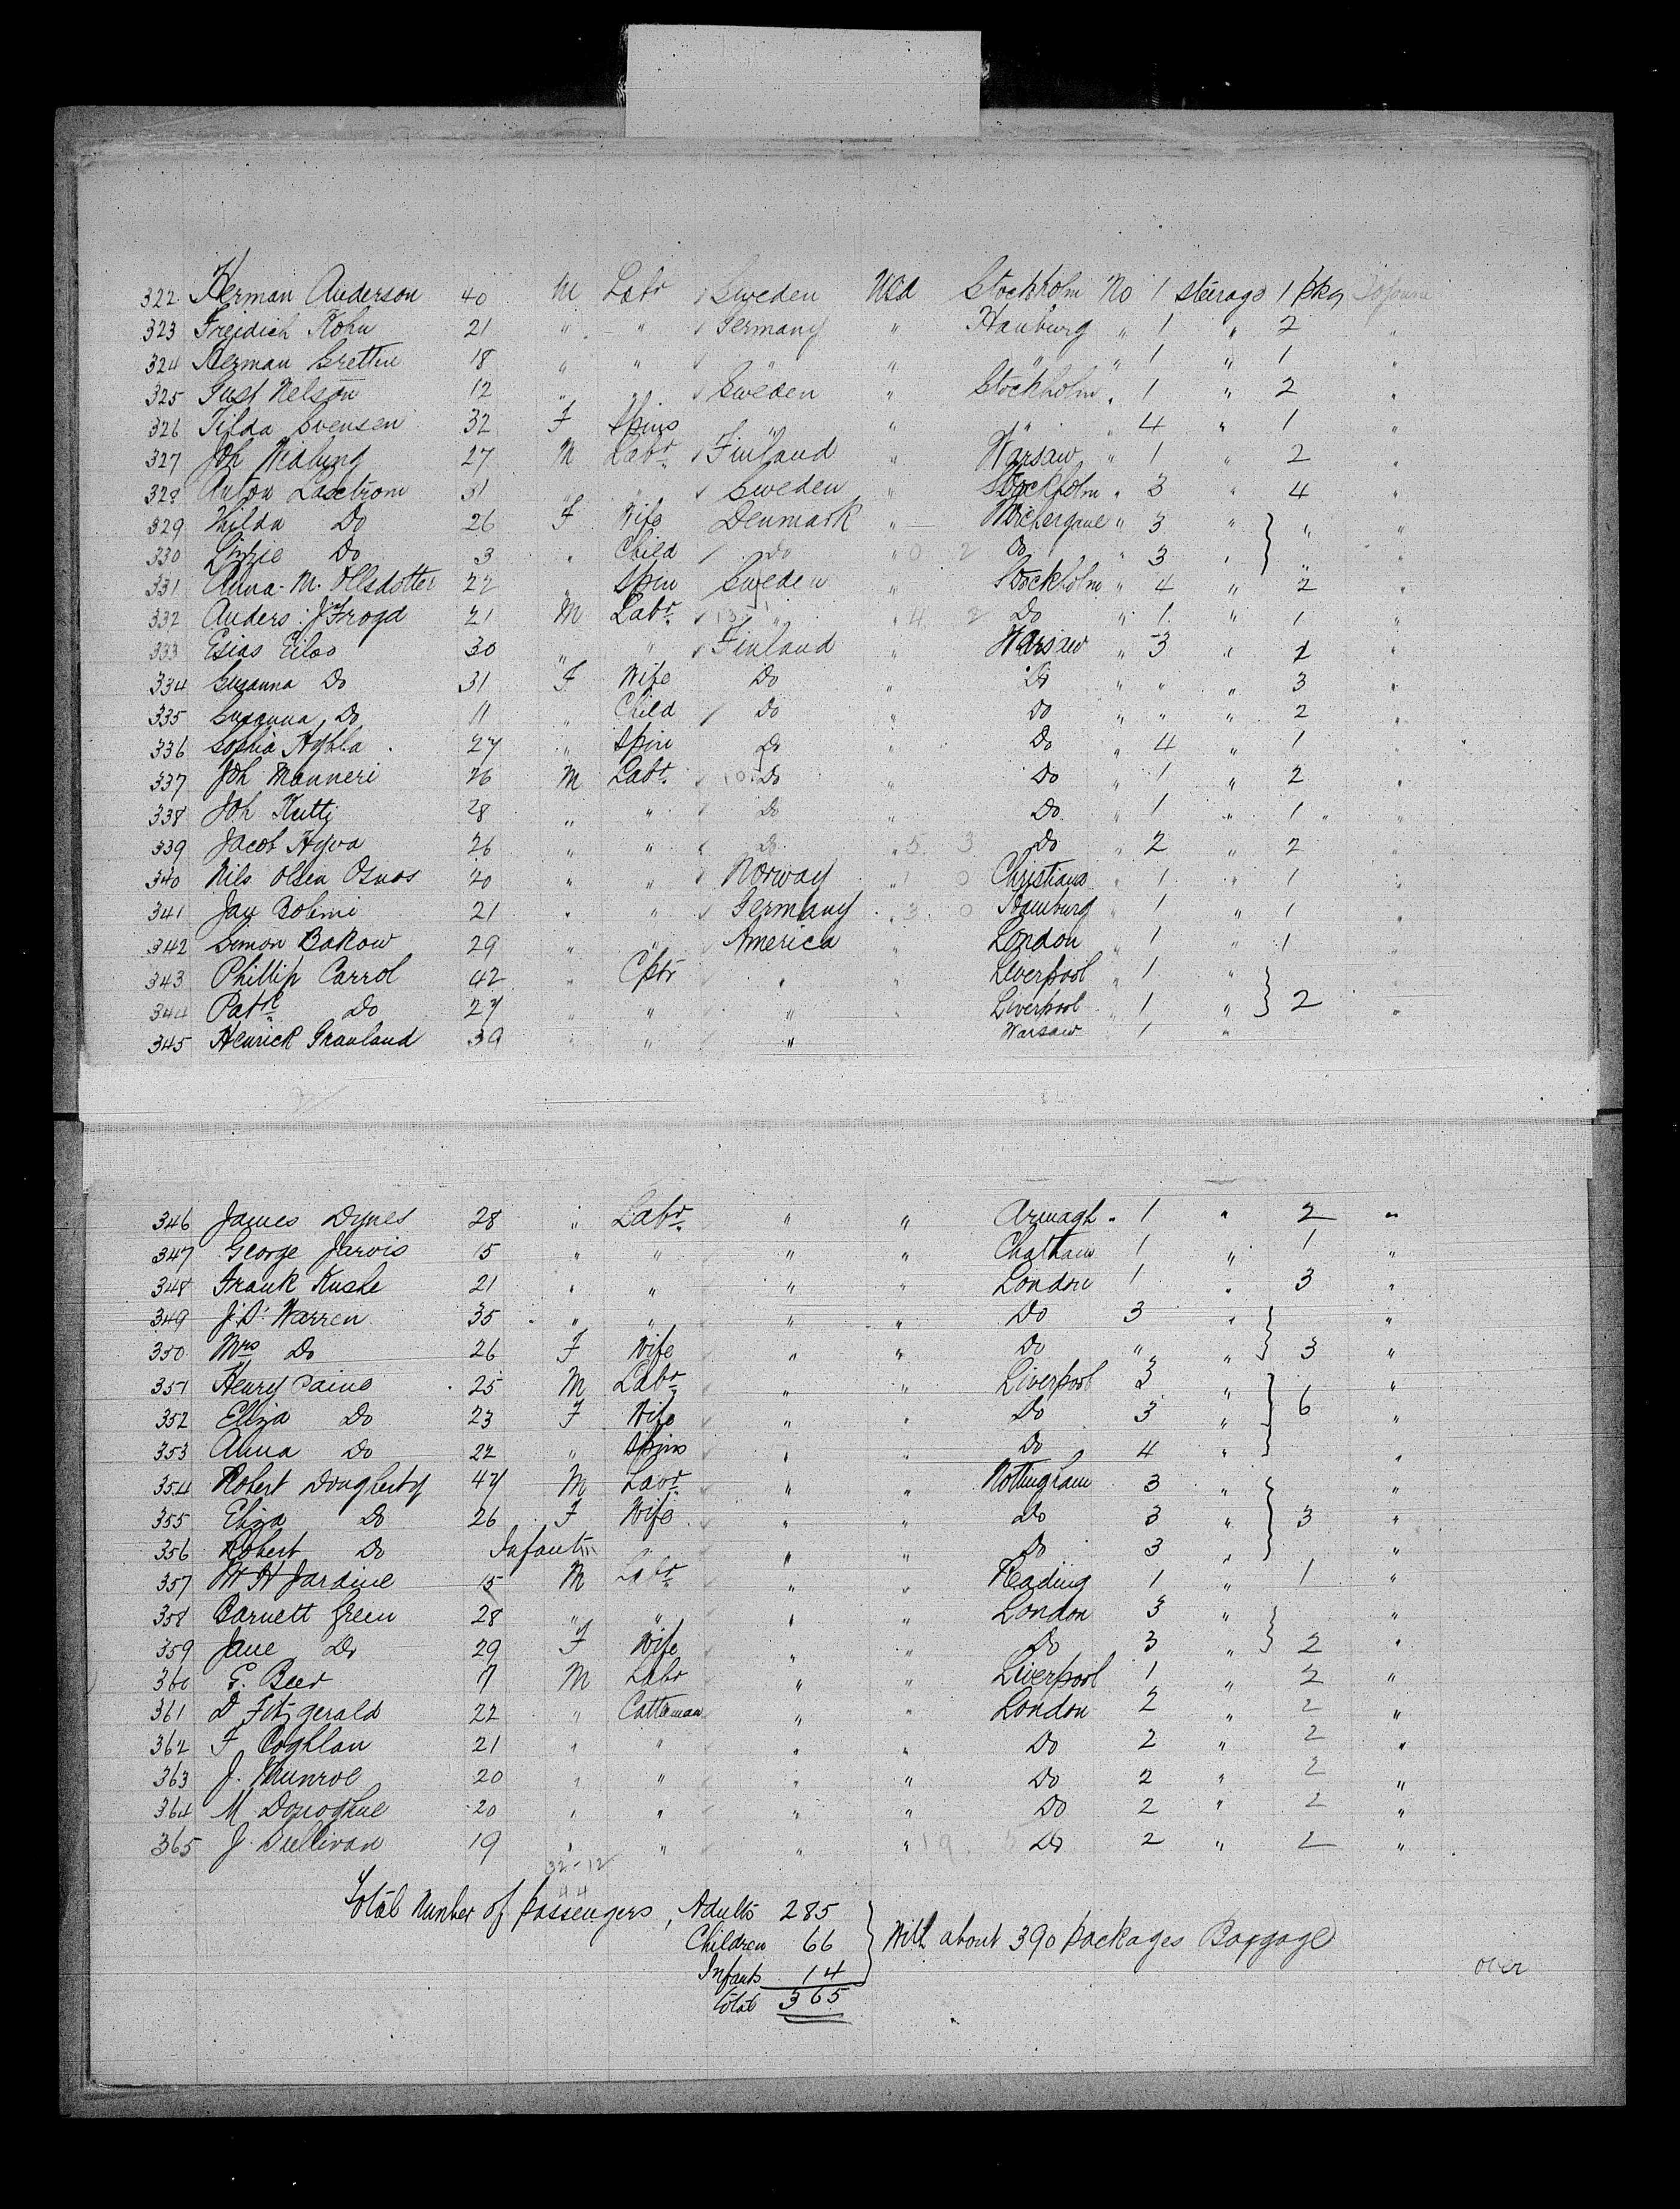 322 Herman Anderson 40 M Labr Sweden USA Stockholm No 1 steerage 1 pkg
323 Freidich Kohn 21 " " Germany " Hamburg " 1 " 2 "
324 Herman Grettin 18 " " " " " " 1 " 1 "
325 Gust Nelson 12 " " Sweden " Stockholm " 1 " 2 "
326 Tilda Svensen 32 F Spins " " " " 4 " 1 "
327 Joh 27 M Labr Finland " Warsaw " 1 " 2 "
328 Anton Lasctrom 31 " " Sweden " Stockholm " 3 " 4 "
329 Hilda Do 26 F Wife Denmark " " 3 " " "
330 Lizzie Do 3 " Child Do " 0 2 Do " 3 " " "
331 Anna M. Ollsdotter 22 " Spin Sweden " Stockholm " 4 " 2 "
332 Anders J Frogd 21 M Labr " " 4 2 Do " 1 " 1 "
333 Esias Eiloo 30 " " Finland " Warsaw " 3 " 1 "
334 Susanna Do 31 F Wife Do " Do " " " 3 "
335 Susanna Do 11 " Child Do " Do " " " 2 "
336 Sophia Hyhla 27 " Spin Do " Do " 4 " 1 "
337 Joh Manneri 26 M Labr Do " Do " 1 " 2 "
338 Joh Kutti 28 " " Do " Do " 1 " 1 "
339 Jacob Hyva 26 " " Do " 5 3 Do " 2 " 2 "
340 Nils Olsen Osnos 20 " " Norway " 1 0 Christiana " 1 " 1 "
341 Jan Bohmi 21 " " Germany " 3 0 Hamburg " 1 " 1 "
342 Simon Bakow 29 " " America " London " 1 " 1 "
343 Phillip Carrol 42 " Cptr " " Liverpool " 1 "
344 Patk Do 27 " " " " Liverpool " 1 " 2 "
345 Henrick Granland 39 " " " Warsaw 1 "
346 James Dynes 28 " Labr " " Armagh " 1 " 2 "
347 George Jarvis 15 " " " " Chatham 1 " 1 "
348 Frank Kushe 21 " " " " London 1 " 3 "
349 J. D. Warren 35 " " " " Do 3 " "
350 Mrs Do 26 F Wife " " Do " " 3 "
351 Henry Paine 25 M Labr " " Liverpool 3 " "
352 Eliza Do 23 F Wife " " Do 3 " 6 "
353 Anna Do 22 " Spins " " Do 4 " "
354 Robert Dougherty 47 M Labr " " Nottingham 3 " "
355 Eliza Do 26 F Wife " " Do 3 " 3 "
356 Robert Do Infant " " Do 3 " "
357 W H Jardine 15 M Labr " " Reading 1 " 1 "
358 Barnett Green 28 " " " " London 3 " "
359 Jane Do 29 F Wife " " Do 3 " 2 "
360 E. Beer 17 M Labr " " Liverpool 1 " 2 "
361 D Fitzgerald 22 " Catteman " " London 2 " 2 "
362 F Coghlan 21 " " " " Do 2 " 2 "
363 J. Munroe 20 " " " " Do 2 " 2 "
364 M Donoghue 20 " " " " Do 2 " 2 "
365 J Sullivan 19 " " " " 19 5 Do 2 " 2 "
32-12
44
Total Number of Passengers, Adults 285
Children 66 With about 390 packages Baggage
Infants 14
over
total 365